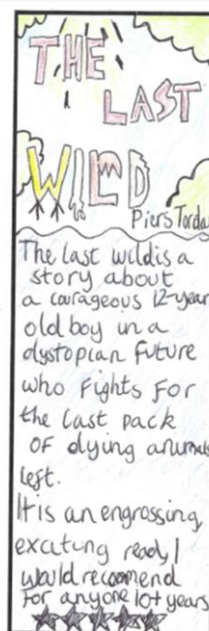 THE
LAST
WILD
Piers Torda
The last wild is a
story about
a courageous 12-year
old boy in a
dystopian future
who fights for
the last pack
of dying animals
left.
It is an engrossing,
exciting ready I
would recoomend
for anyone 10+ years